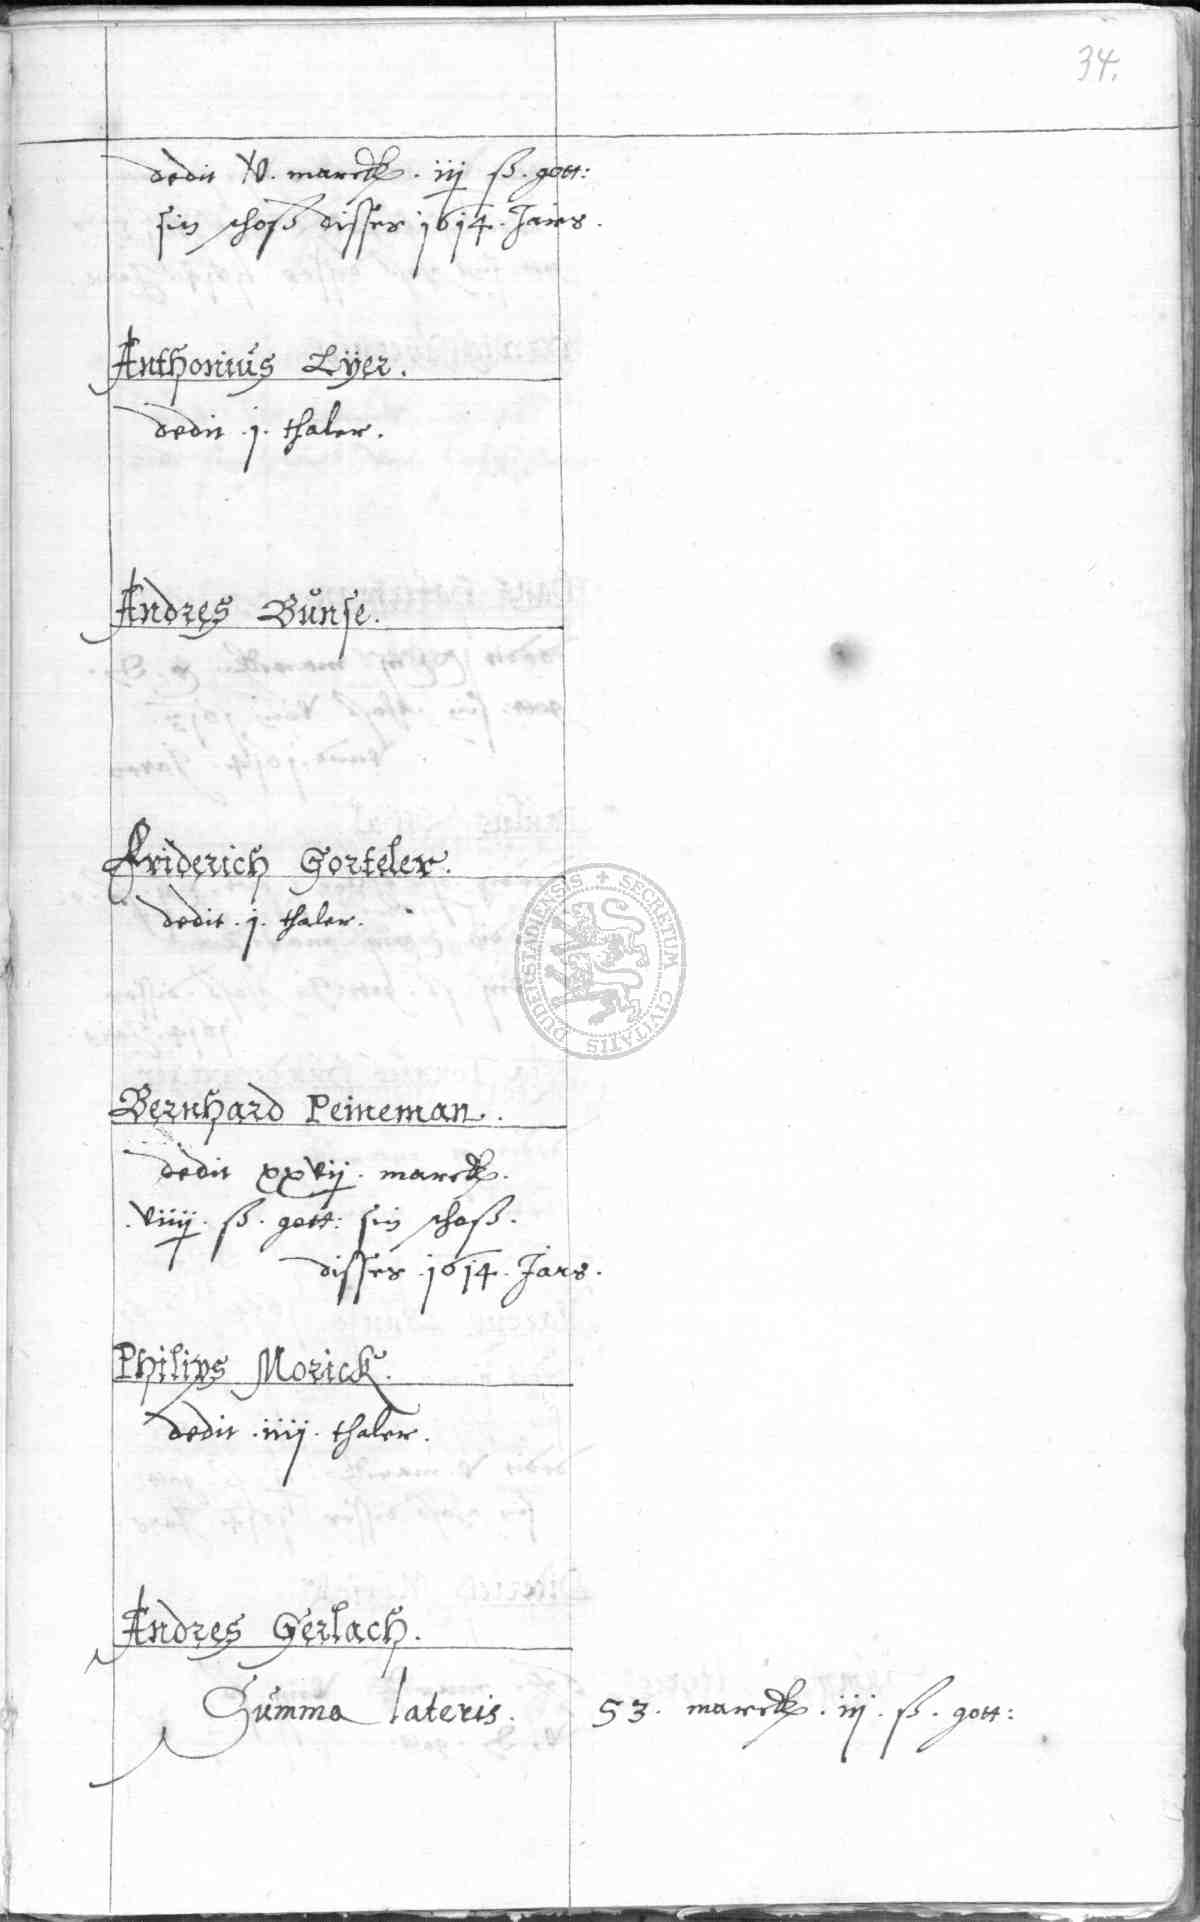 34.
dedit v. marck. iij ß. gott:
sin schoß disses 1614. Jars.
Anthonius Lÿer.
dedit .j. thaler.
Andres Bunse.
Friderich Gorteler.
dedit .j. thaler.
SECRETUM CIVITATIS DUDERSTADIENSIS
Bernhard Peineman.
dedit xxvij. marck.
.viiij. ß. gott: sin schoß.
disses .1614. Jars.
Philips Morick.
dedit .iiij. thaler.
Andres Gerlach.
Summa lateris. 53. marck. iij. ß. gott: